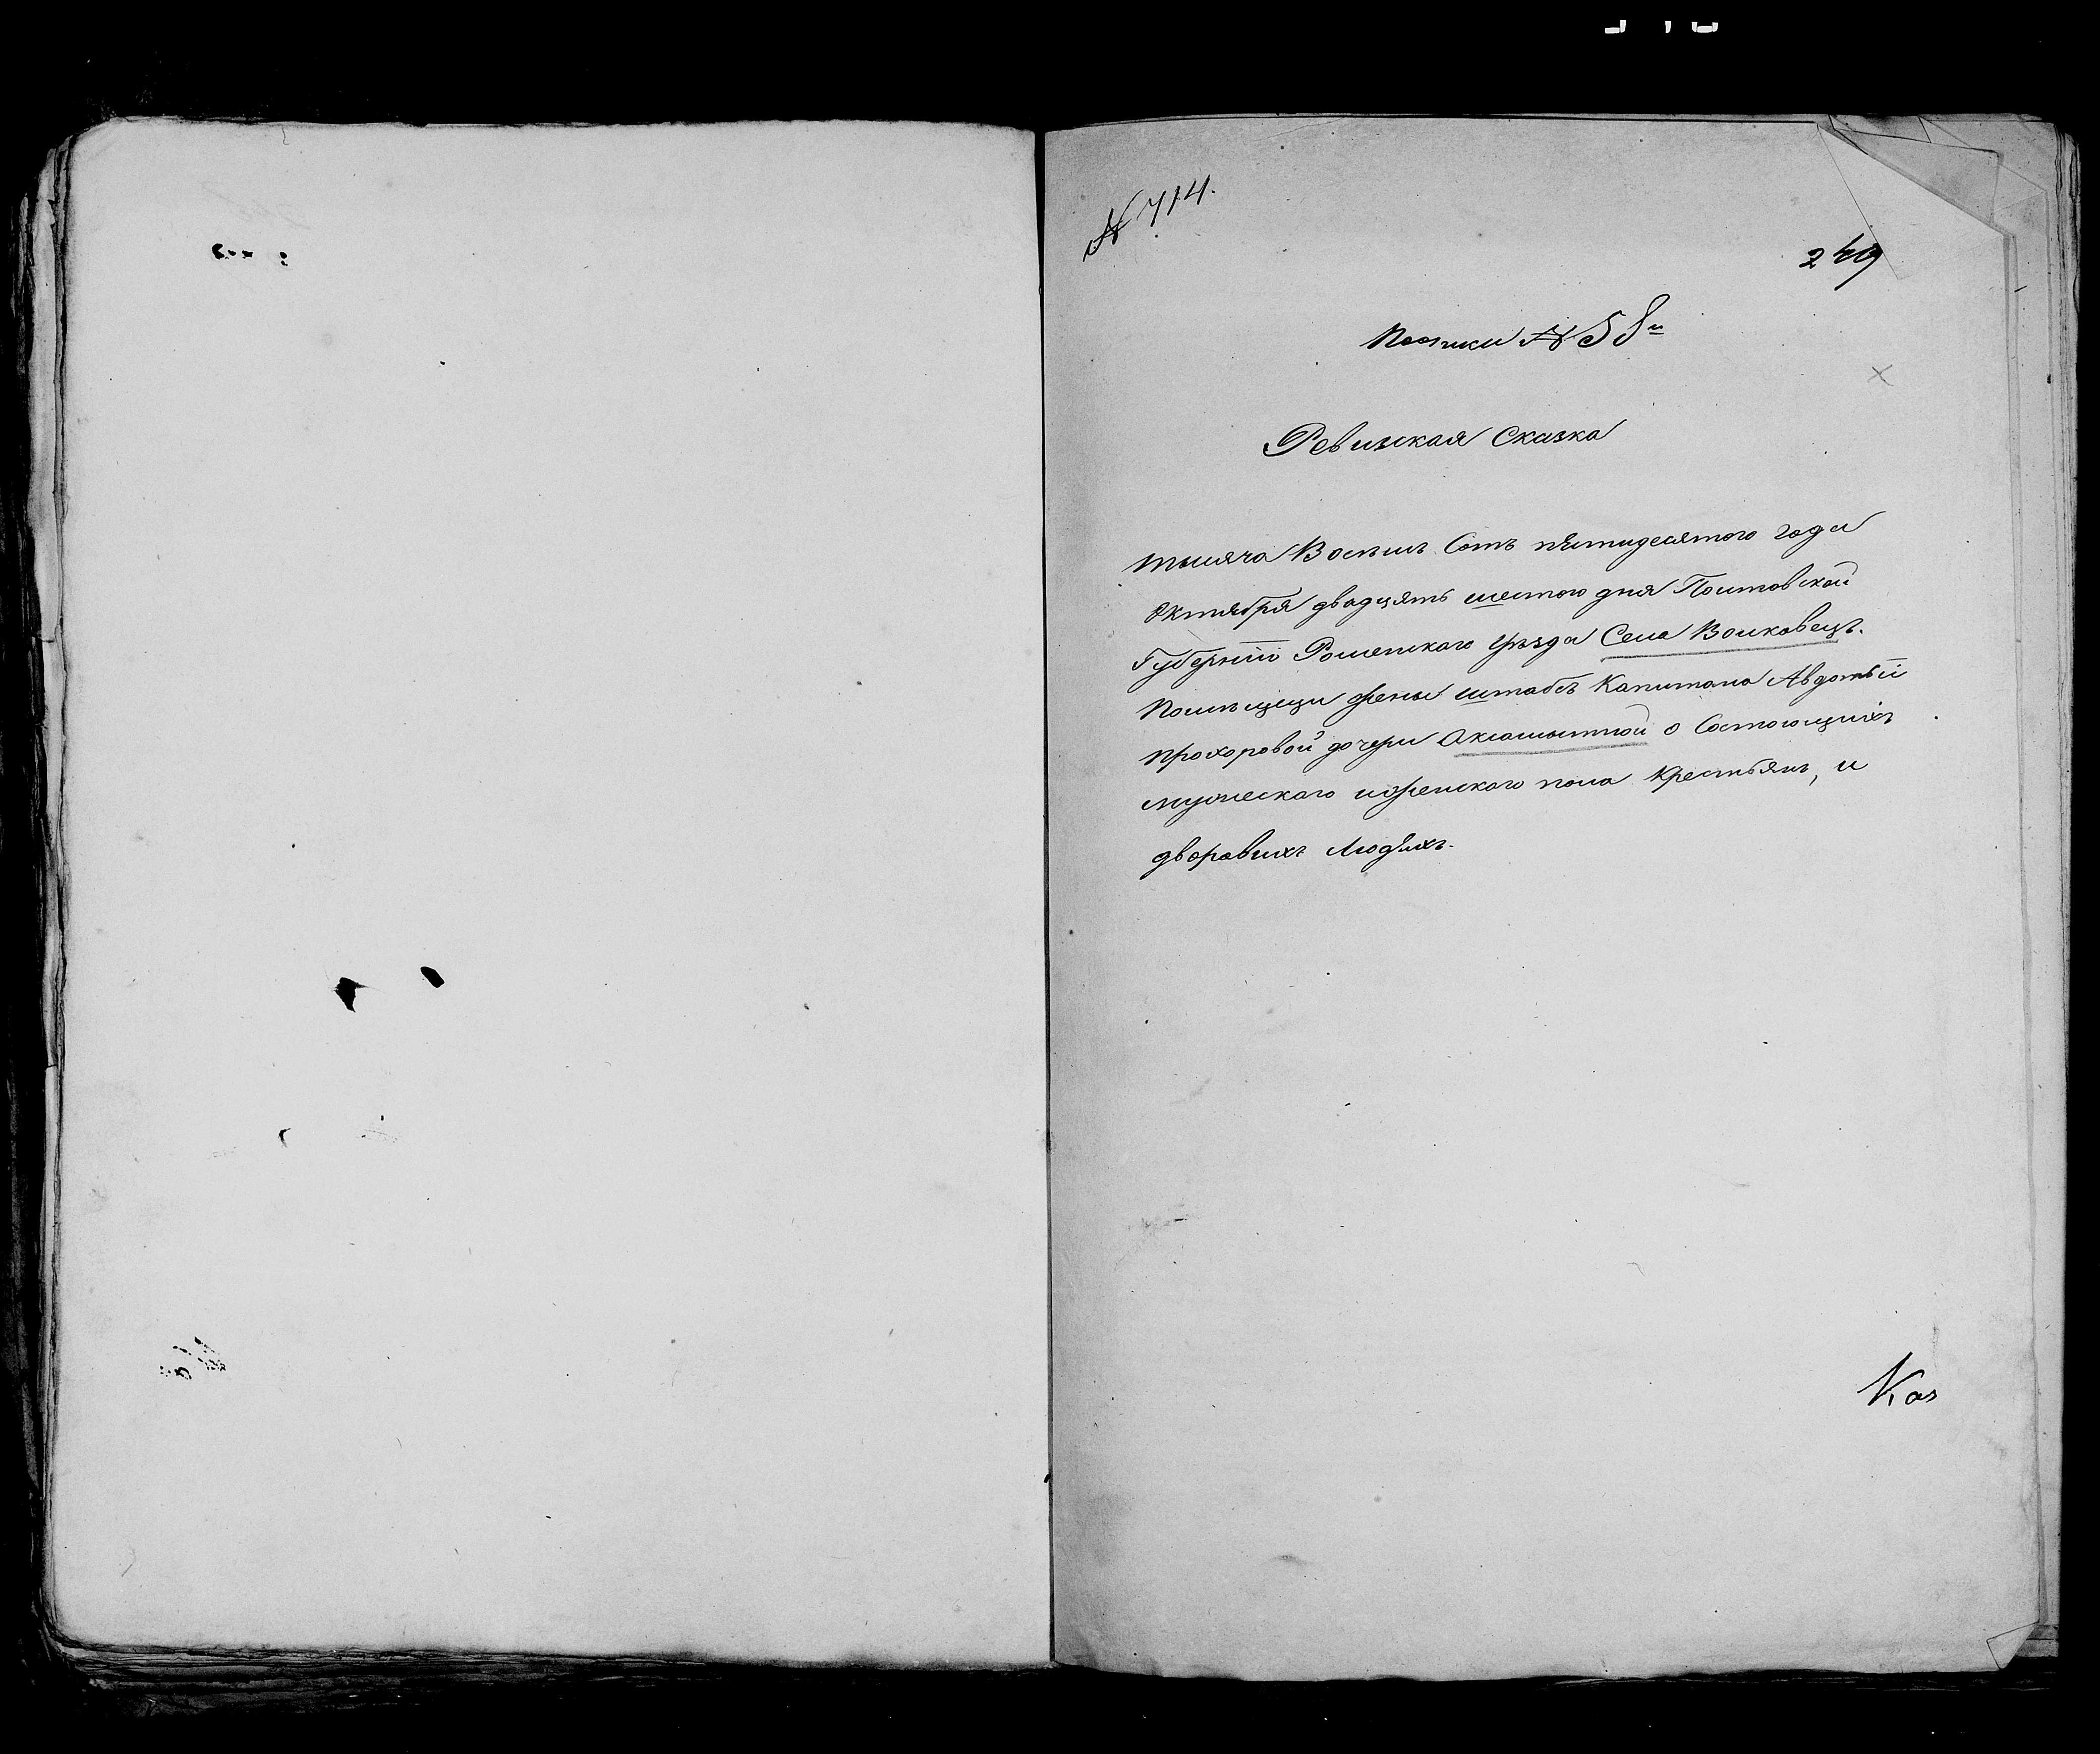 № 714.
249
Пачики № 58й
Ревизская Сказка
тысяча Восемь Сотъ пятидесятого года
Октября двадцять шестого дня Полтовской
Губернїи Роменского уѣзда Села Волковецъ.
Помѣщици жены штабсъ Капитана Авдотьи
прохоровой дочери о Состоющихъ
мужескаго иженского пола Крестьянъ, и
дворовихъ Людяхъ.
Каз